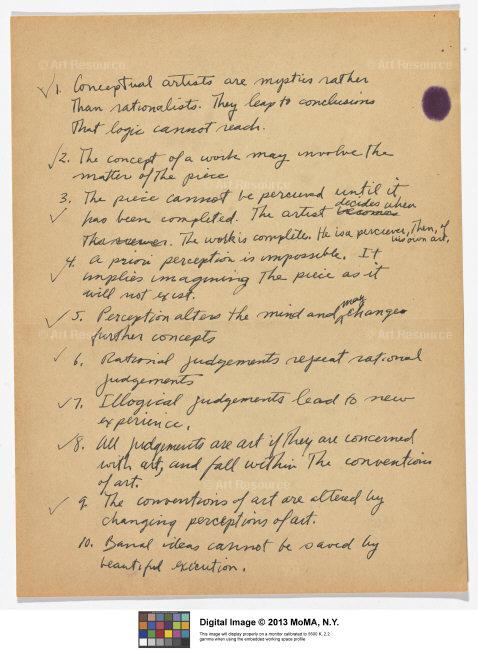 © Art Resource
© Art Resource
✓ 1. Conceptual artists are mystics rather
than rationalists. They leap to conclusions
that logic cannot reach.
✓ 2. The concept of a work may involve the
matter of the piece
3. The piece cannot be perceived until it
✓ has been completed. The artist becomes decides when
the viewer. The work is complete. He is a perceiver, then, of
his own art.
✓ 4. A priori perception is impossible. It
implies imagining the piece as it
will not exist.
✓ 5. Perception alters the mind and may changes
further concepts
✓ 6. Rational judgements repeat rational
judgements
✓ 7. Illogical judgements lead to new
experience.
✓ 8. All judgements are art if they are concerned
with art, and fall within the conventions
of art.
✓ 9. The conventions of art are altered by
changing perceptions of art.
10. Banal ideas cannot be saved by
beautiful execution.
© Art Resource
© Art Resource
© Art Resource
© Art Resource
Digital Image © 2013 MoMA, N.Y.
This image will display properly on a monitor calibrated to 5500 K, 2.2
gamma when using the embedded working space profile